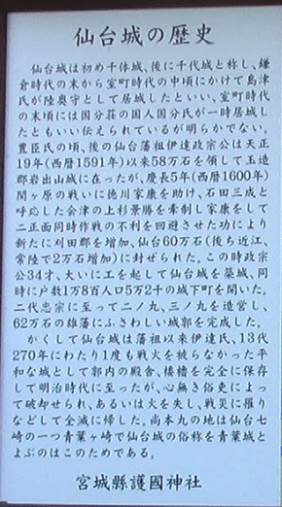 仙台城の歴史
仙台城は初め千体城、後に千代城と称し、鎌
倉時代の末から室町時代の中頃にかけて島津
氏が陸奥守として居城したといい、室町時代
の末頃には国分荘の国人国分氏が一時居城し
たともいい伝えられているが明らかでない。
豊臣氏の頃、後の仙台藩祖伊達政宗公は天正
19年(西暦1591年)以来58万石を領して玉造
郡岩出山城に在ったが、慶長5年(西暦1600年)
関ヶ原の戦いに徳川家康を助け、石田三成と
呼応した会津の上杉景勝を牽制し家康をして
二正面同時作戦の不利を回避させた功により
新たに刈田郡を増加、仙台60万石(後ち近江、
常陸で2万石増加)に封ぜられた。この時政宗
公34才、大いに工を起して仙台城を築城、同
時に戸数1万8百人口5万2千の城下町を開いた。
二代忠宗に至って二ノ丸、三ノ丸を造営し、
62万石の雄藩にふさわしい城郭を完成した。
かくして仙台城は藩祖以来伊達氏、13代
270年にわたり1度も戦火を被らなかった平
和な城として郭内の殿舎、楼櫓を完全に保存
して明治時代に至ったが、心無き俗吏によっ
て破却せられ、あるいは火を失し、戦災に罹り
などして全滅に帰した。尚本丸の地は仙台七
崎の一つ青葉ヶ崎で仙台城の俗称を青葉城と
よぶのはこのためである。
宮城縣護國神社